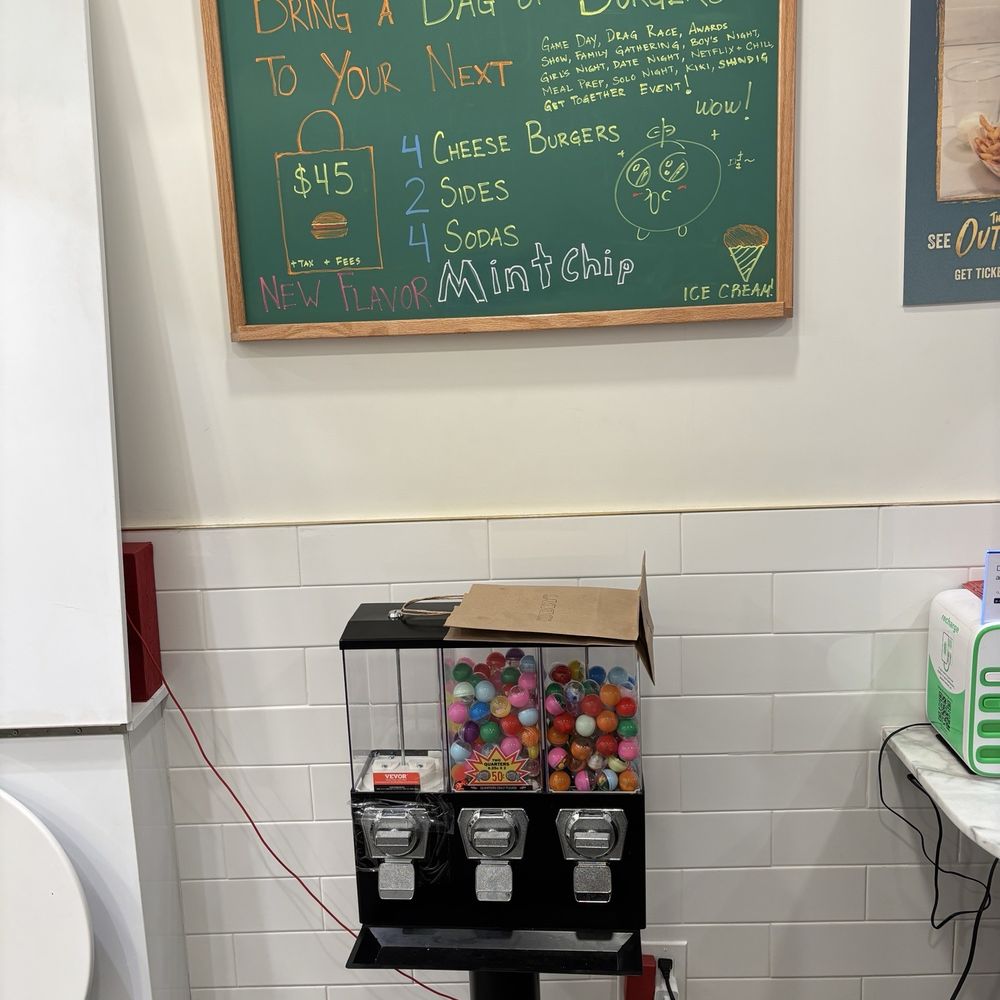 BRING A BAG OF BURGERS
TO YOUR NEXT
GAME DAY, DRAG RACE, AWARDS
SHOW, FAMILY GATHERING, BOY'S NIGHT,
GIRL'S NIGHT, DATE NIGHT, NETFLIX + CHILL,
MEAL PREP, SOLO NIGHT, KIKI, SHINDIG
GET TOGETHER EVENT!
WOW!
$45
+TAX + FEES
4 CHEESE BURGERS
2 SIDES
4 SODAS
NEW FLAVOR Mint Chip
ICE CREAM!
SEE
GET TICKE
VEVOR
TWO
QUARTERS
50¢
recharge